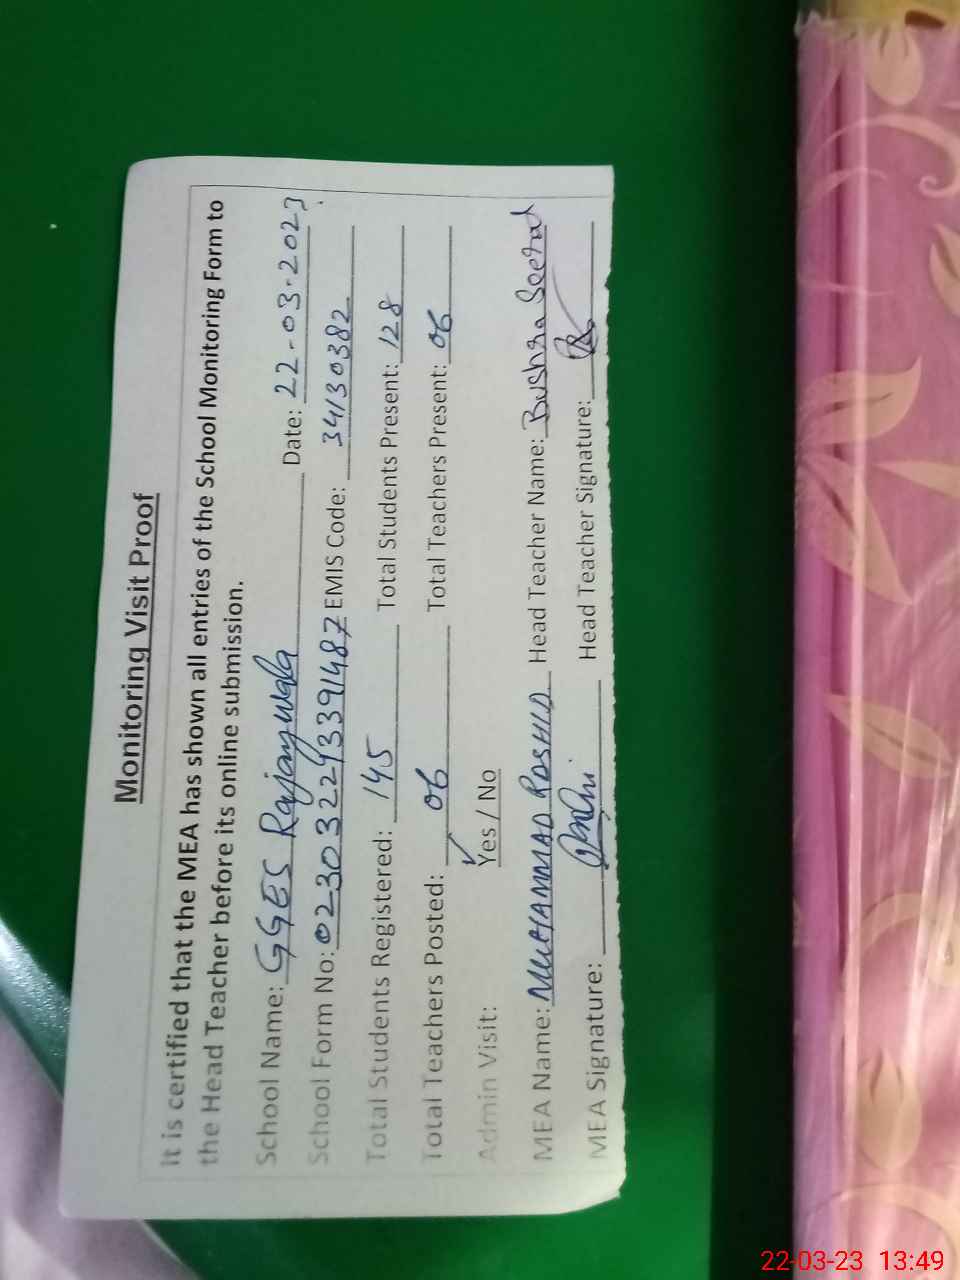 Monitoring Visit Proof
It is certified that the MEA has shown all entries of the School Monitoring Form to
the Head Teacher before its online submission.
School Name: GGES Rajaywala Date: 22-03-2023
School Form No: 023032243391487 EMIS Code: 34130382
Total Students Registered: 145 Total Students Present: 128
Total Teachers Posted: 06 Total Teachers Present: 06
Admin Visit: Yes / No
MEA Name: MUHAMMAD RASHID Head Teacher Name: Bushra Seerat
MEA Signature: Head Teacher Signature:
22-03-23 13:49